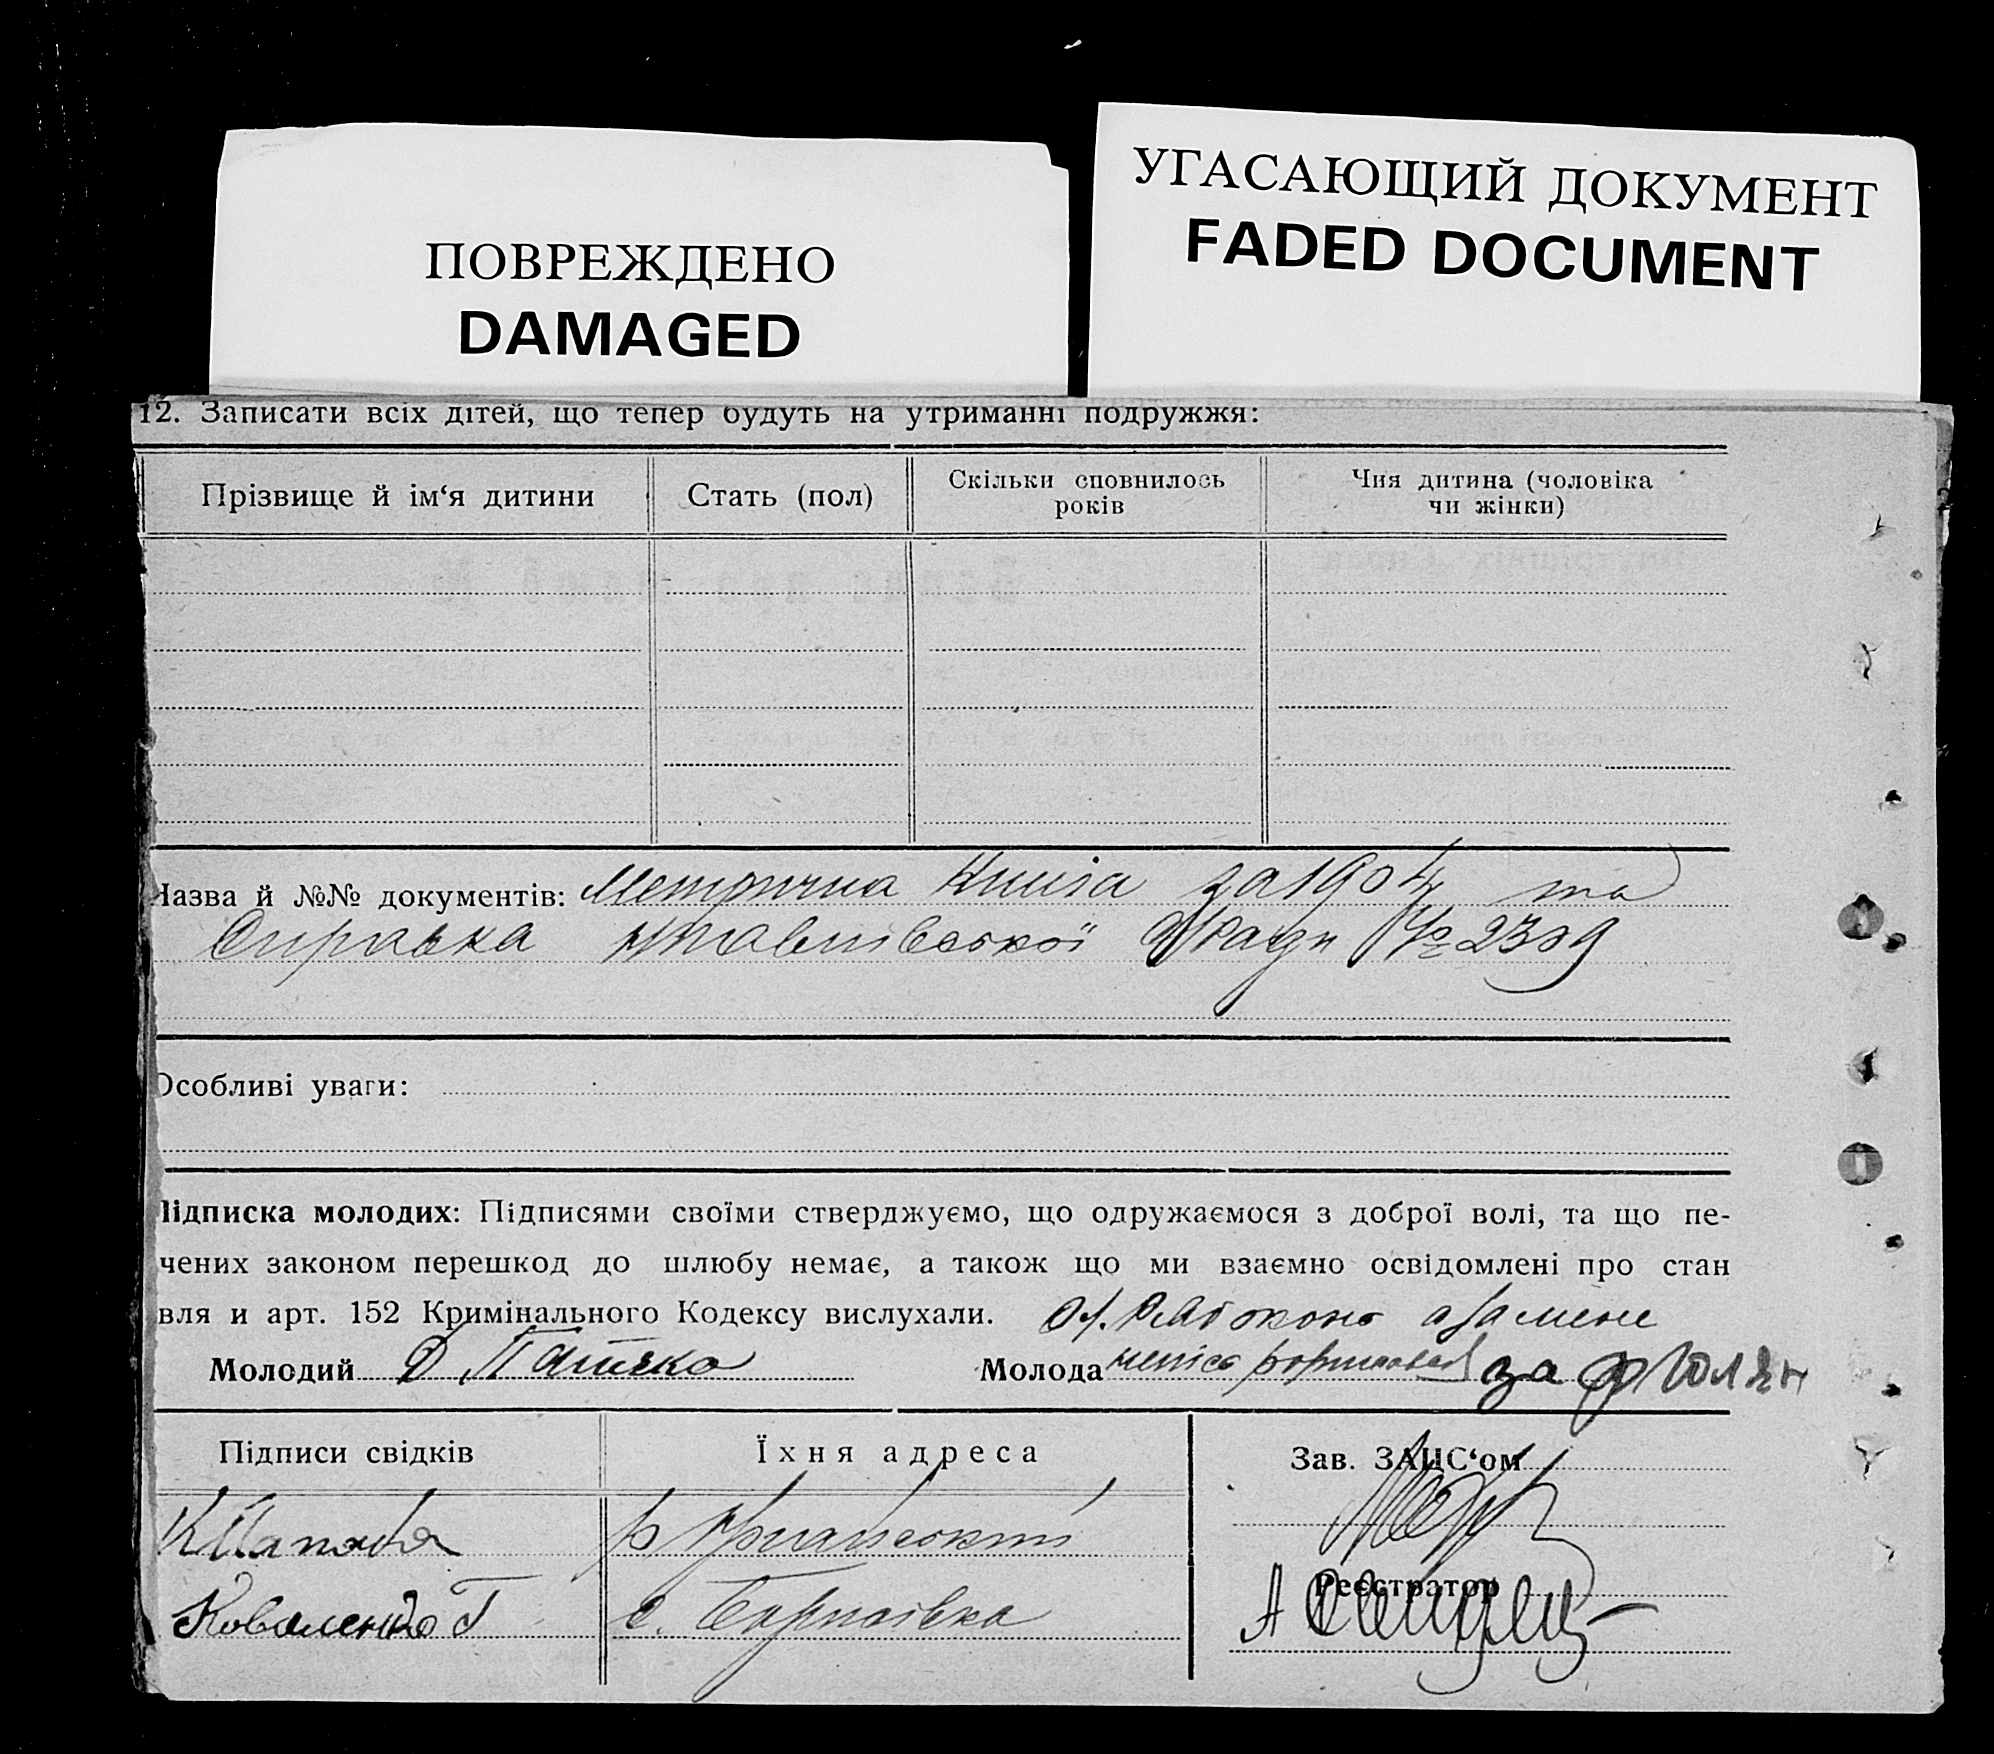 ПОВРЕЖДЕНО
DAMAGED
УГАСАЮЩИЙ ДОКУМЕНТ
FADED DOCUMENT
12. Записати всіх дітей, що тепер будуть на утриманні подружжя:
Прізвище й ім‘я дитини
Стать (пол)
Скільки сповнилось
років
Чия дитина (чоловіка
чи жінки)
Назва й №№ документів: Метрична Книга за 1904 та
Справка Ради № 2309
Особливі уваги:
Підписка молодих: Підписями своїми стверджуємо, що одружаємося з доброї волі, та що пе-
чених законом перешкод до шлюбу немає, а також що ми взаємно освідомлені про стан
вля и арт. 152 Кримінального Кодексу вислухали.
Молодий Д
Молода за
Підписи свідків
Їхня адреса
Зав. ЗАЦС‘ом
Коваленко Г
с.
Реєстратор
А